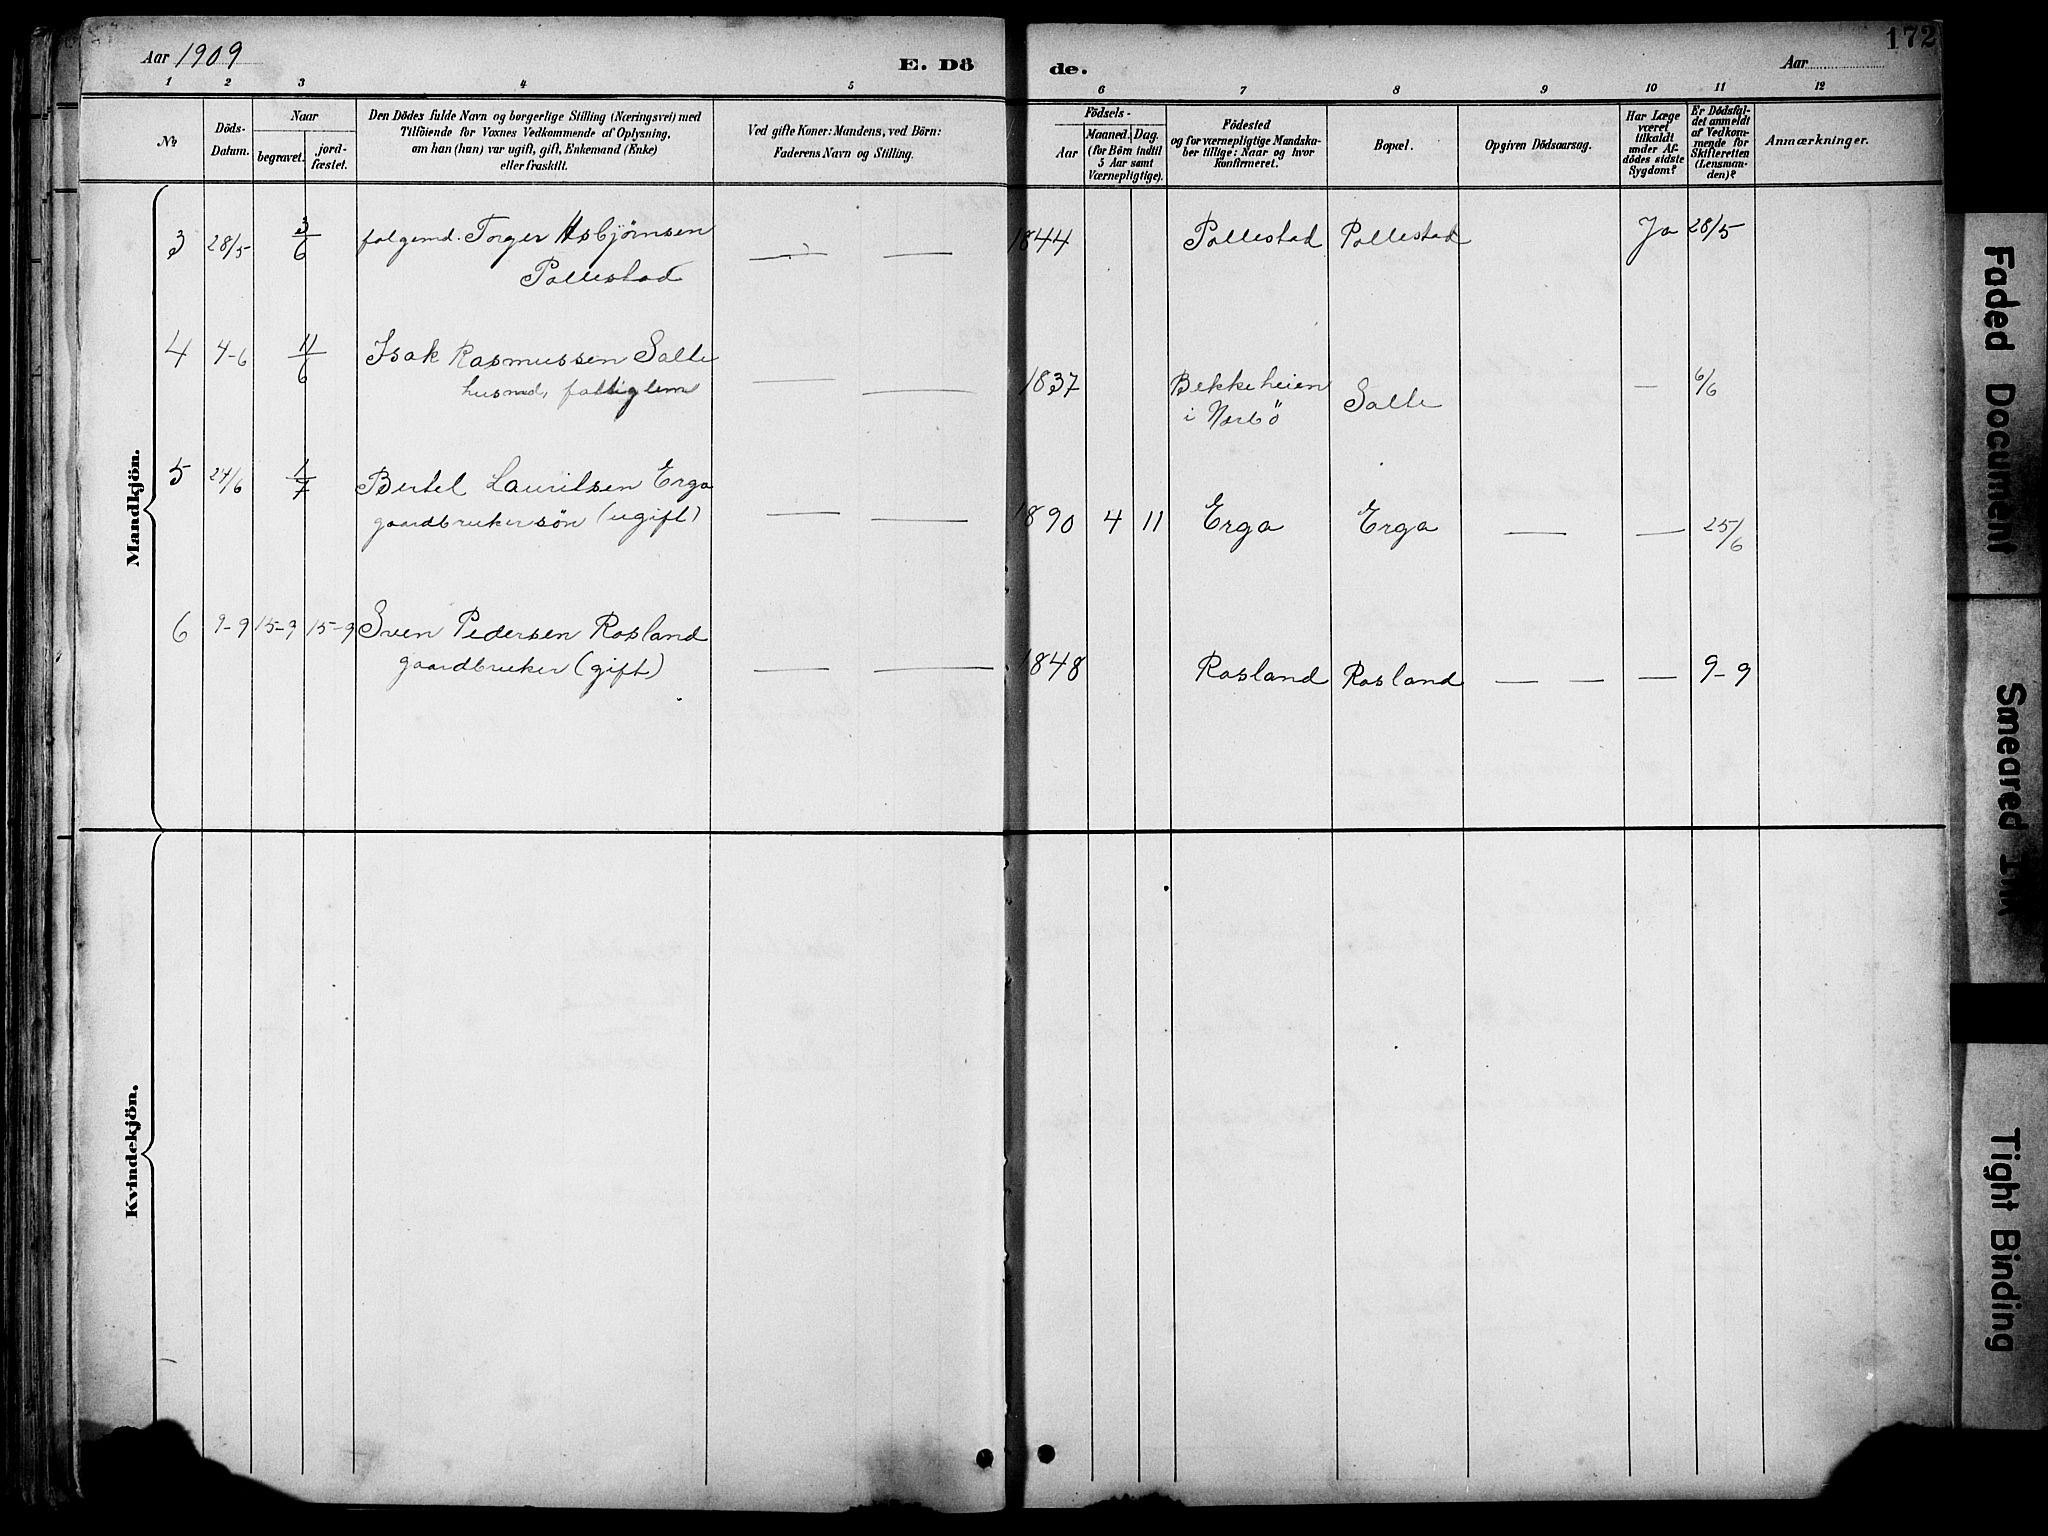 Aar 1909
E. Dö
de.
Aar
172
1 2 3 4 5 6 7 8 9 10 11 12
No
Döds-
Datum.
Naar
begravet.
jord-
fæstet.
Den Dödes fulde Navn og borgerlige Stilling (Næringsvei) med
Tilföiende for Voxnes Vedkommende af Oplysning,
om han (hun) var ugift, gift, Enkemand (Enke)
eller fraskilt.
Ved gifte Koner: Mandens, ved Börn:
Faderens Navn og Stilling.
Födsels-
Aar
Maaned. Dag.
(for Börn indtil
5 Aar samt
Værnepligtige).
Födested
og for værnepligtige Mandska-
ber tillige: Naar og hvor
konfirmeret.
Bopæl.
Opgiven Dödsaarsag.
Har Læge
været
tilkaldt
under Af-
dödes sidste
Sygdom?
Er Dödsfal-
det anmeldt
af Vedkom-
mende for
Skifteretten
(Lensman-
den)?
Anmærkninger.
Mandkjön.
3 28/5 3/6 folgemd. Torger Asbjørnsen
Pollestad
1844 Pollestad Pollestad Ja 28/5
4 4-6 11/6 Isak Rasmussen Salte
husmd, fattiglem
1837 Bekkeheien
i Nærbö
Salte — 6/6
5 24/6 1/7 Bertel Lauritsen Erga
gaardbrukersøn (ugift)
1890 4 11 Erga Erga — — 25/6
6 9-9 15-9 15-9 Sven Pedersen Rosland
gaardbruker (gift)
1848 Rosland Rosland — — — 9-9
Kvindekjön.
Faded Document
Smeared Ink
Tight Binding